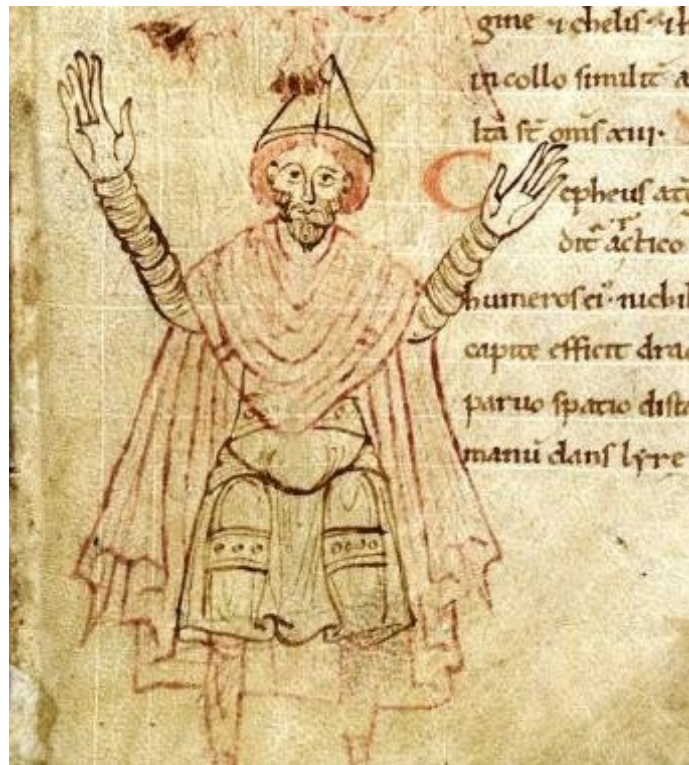 gine ⁊ chelis
in collo similit̄ a
ltā st̄ om̄s xiii·
Cepheus
dic̄ arctico
humeros ei· nichil
capite efficit drac
paruo spatio dista
manū dans lyre